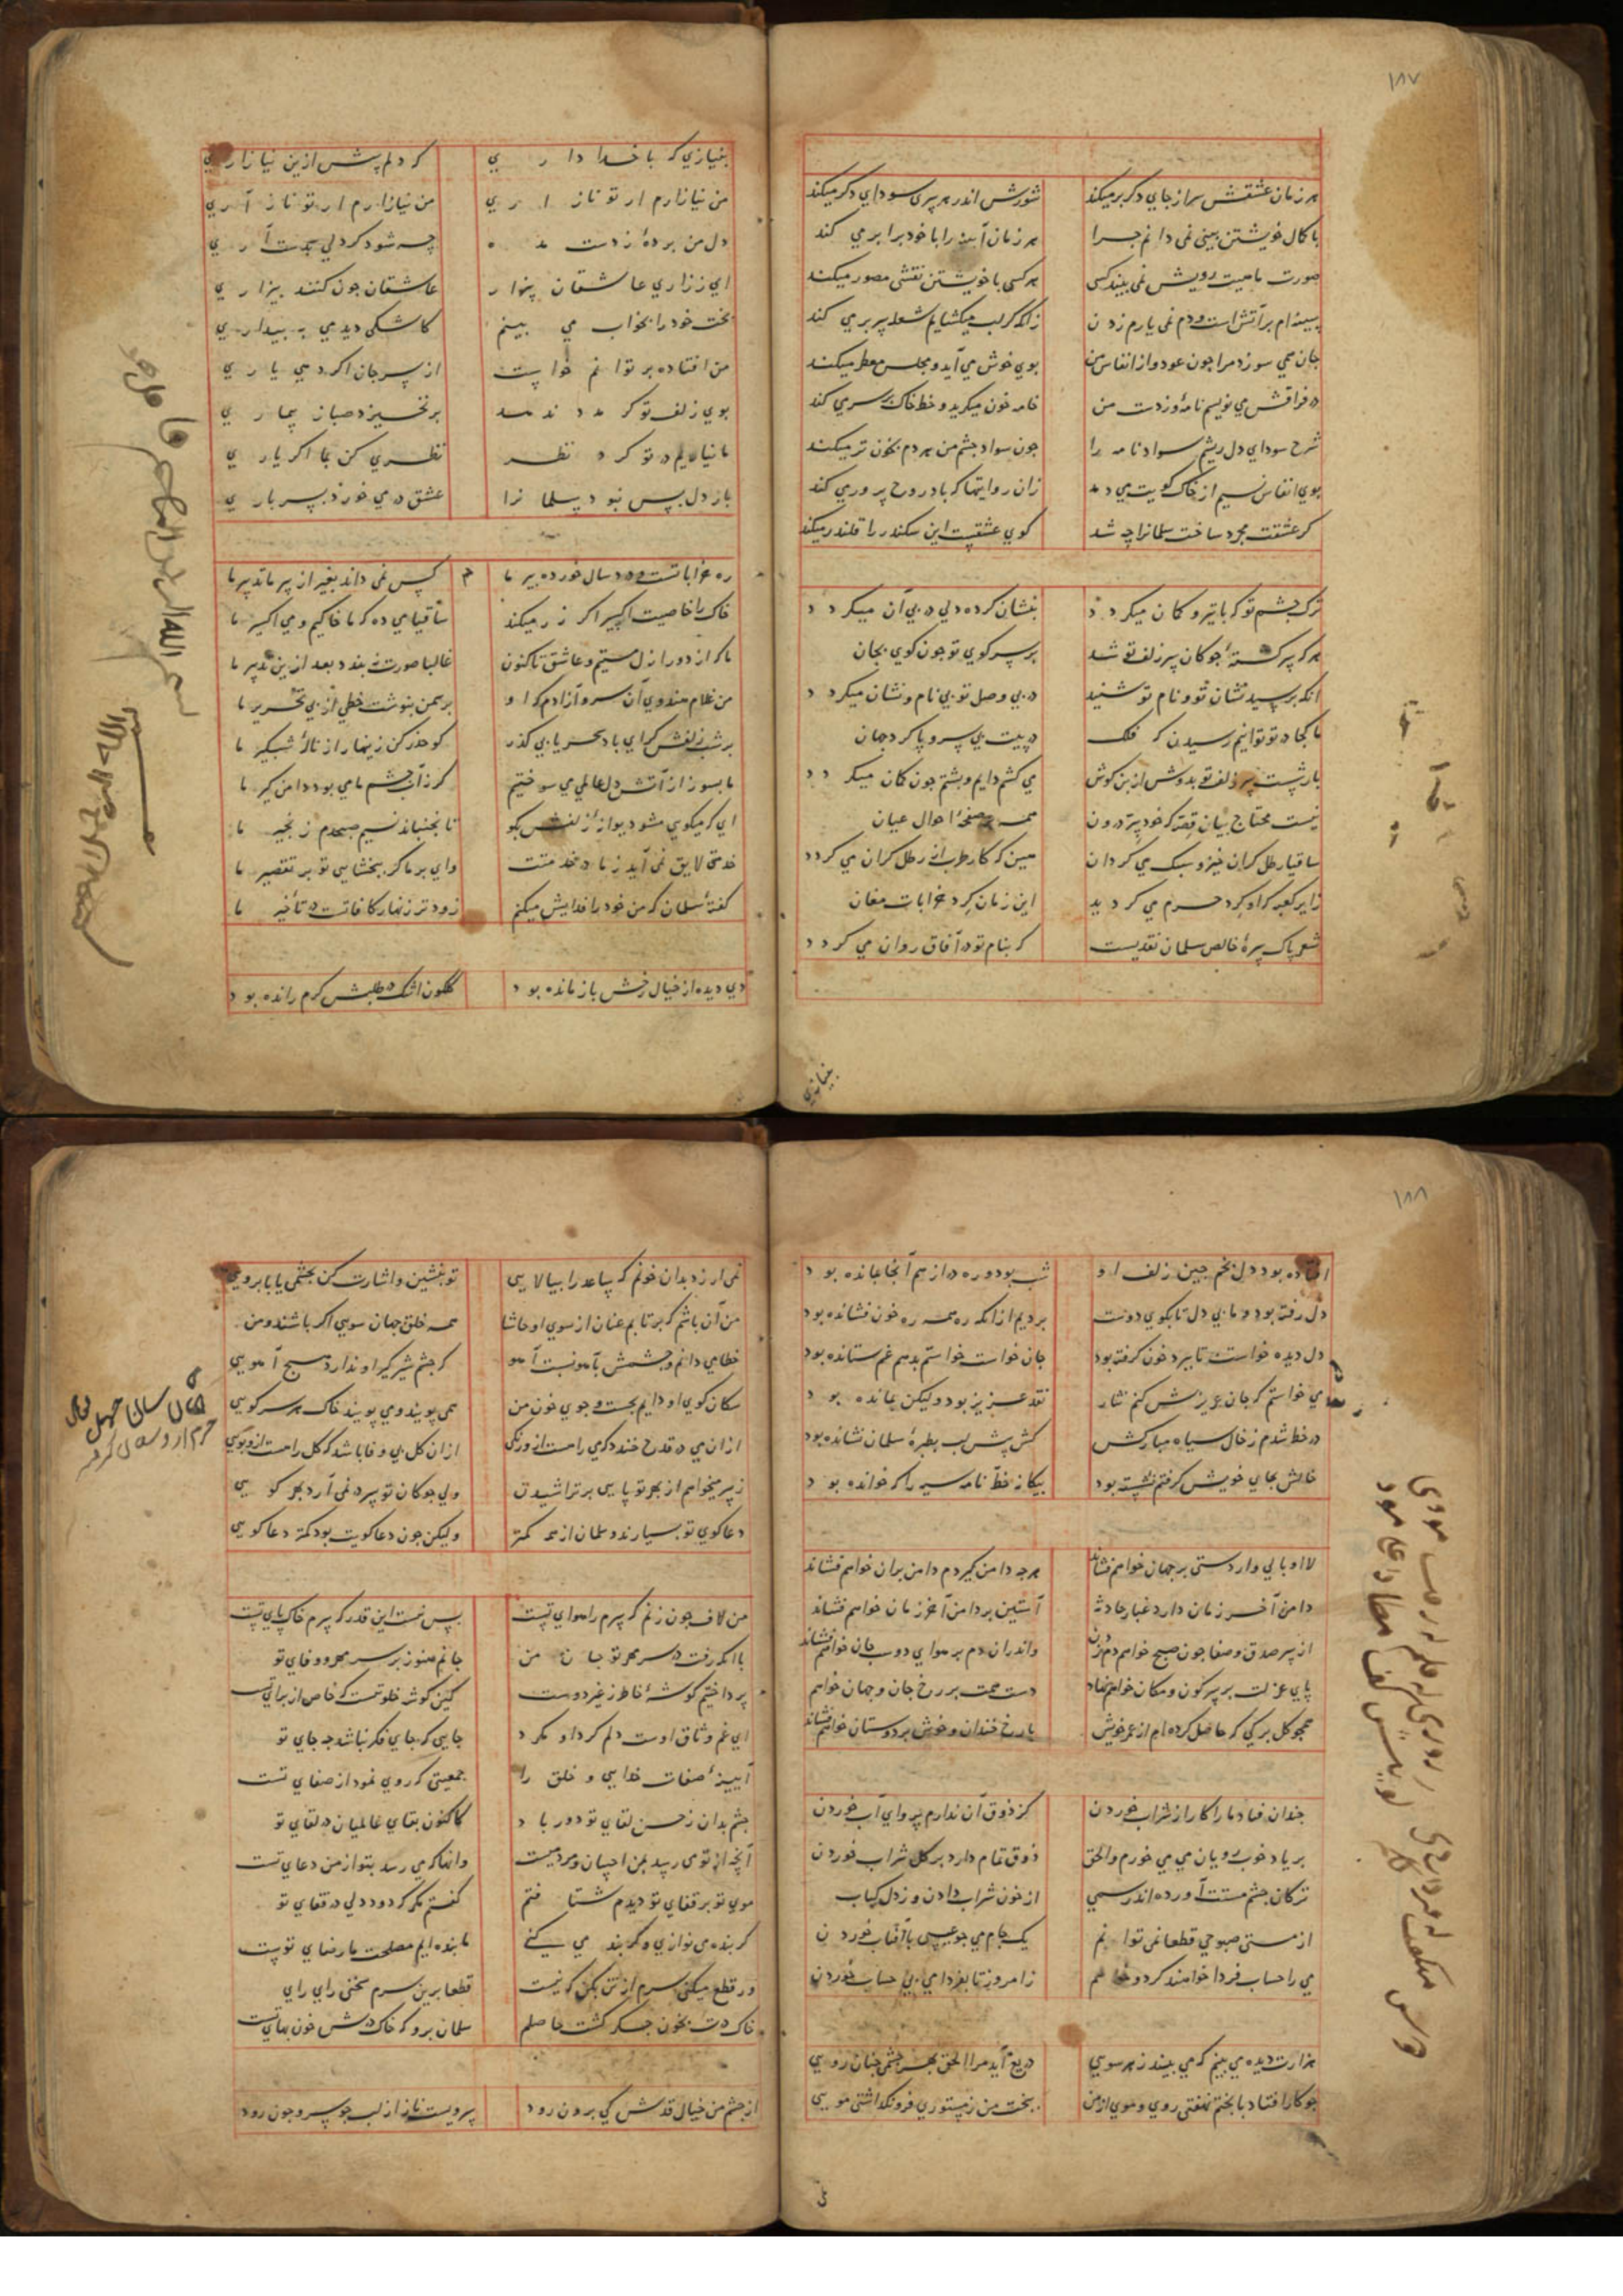 ۱۸۷
هر زمان عشقش سر از جای دکر بر میکند شورش اندر هر سری سودای دکر میکند
با کمال خویشتن بینی نمی دانم چرا هر زمان آینه را با خود برابر می کند
صورت ماهیت رویش نمی بیند کسی هر کسی با خویشتن نقشی مصور میکند
سینه ام پر آتش است و دم نمی یارم زدن زانکه کر لب میکشایم شعله سر بر می کند
جان همی سوزد مرا جون عود واز انفاس من بوی خوش می آید و مجلس معطر میکند
در فراقش می نویسم نامه وز دست من خامه خون میکرید و خط خاک بر سر می کند
شرح سودای دل ریشم سواد نامه را جون سواد جشم من هر دم بخون تر میکند
بوی انفاس نسیم از خاک کویت می دمد زان روایتها که باد روح پروری کند
کر عشقت مجرد ساخت سلمانرا چه شد کوی عشقست این سکندر را قلندر میکند
ترک جشم تو که با تیر و کمان میکردد بنشان کرده دلی در پی آن میکردد
هر که سرکشتهٔ جوکان سر زلف تو شد بر سر کوی تو جون کوی بجان
انکه پرسید نشان تو و نام تو شنید در پی وصل تو بی نام و نشان میکردد
ما کجا در تو توانیم رسیدن که فلک در پیت بی سر و پا کرد جهان
بار پشت سر زلف تو بدوش از بن کوش می کشم دایم و پشتم جون کمان میکردد
نیست محتاج بیان قصه که خود سر درون همه بر صفحهٔ احوال عیان
ساقیا رطل کران خیز و سبک می کردان مبین که کار طرب از رطل کران می کردد
زایر کعبه که او کرد حرم می کردید این زمان کرد خرابات مغان
شعر پاک سرهٔ خالص سلمان نقدیست که بنام تو در آفاق روان می کردد
بنیازی
بنیازی که با خدا داری که دلم پیش ازین نیازاری
من نیازارم ار تو ناز اری من نیازارم ار تو ناز آری
دل من بردهٔ ز دست مده چه شود کر دلی بدست آری
ای ز زاری عاشقان بیزار عاشقان جون کنند بیزاری
بخت خود را بخواب می بینم کاشکی دیدمی به بیداری
من افتاده بر توانم خواست از سر جان اکر دهی یاری
بوی زلف تو کر مدد ندهد بر نخیزد صبا ز بیماری
ما نیاریم در تو کرد نظر نظری کن بما اکر یاری
باز دل بس نبود سلمانرا عشق در می خورد بسر باری
ره خراباتست و درد سال خورده پیر ما کس نمی داند بغیر از پیر ما تدبیر ما
خاک را خاصیت اکسیر اکر زر میکند ساقیا می ده که ما خاکیم و می اکسیر ما
ما که از دور ازل مستیم و عاشق تاکنون غالبا صورت نبندد بعد ازین تدبیر ما
من غلام هندوی آن سرو آزادم که او بر سمن بنوشت خطی از پی تحریر ما
بر شب زلفش کر ای باد سحر یابی کذر کو حذر کن زینهار از نالهٔ شبکیر ما
ما بسوز از آتش دل عالمی می سوختیم کر ز آب جشم ما می بود دامن کیر ما
ای که میکوی مشو دیوانهٔ زلفش بکو تا نجنباند نسیم صبحدم زنجیر ما
خدمتی لایق نمی آید ز ما در خدمتت وای بر ما کر ببخشایی تو بر تقصیر ما
کفتهٔ سلمان که من خود را فدایش میکنم زودتر زنهار کافاتست در تأخیر ما
دی دیده از خیال رخش باز مانده بود کلکون اشک در طلبش کرم رانده بود
۱۸۸
افتاده بود دل بخم جین زلف او شب بود و ره دراز هم آنجا بمانده بود
دل رفته بود و ما بی دل تا بکوی دوست بردیم از انکه ره همه ره خون فشانده بود
دل دیده خواست تا ببرد خون کرفته بود جان خواست خواستم بدهم غم ستانده بود
می خواستم که جان عزیزش کنم نثار نقد عزیز بود و لیکن نمانده بود
در خط شدم ز خال سیاه مبارکش کش پیش لب بطیرهٔ سلمان نشانده بود
خالش بجای خویش کرفتم نشسته بود بیکانه خط نامه سیه را که خوانده بود
لا اوبالی وار دستی بر جهان خواهم فشاند هرچه دامن کیردم دامن بران خواهم فشاند
دامن آخر زمان دارد غبار حادثه آستین بر دامن آخر زمان خواهم فشاند
از سر صدق و صفا جون صبح خواهم دم زدن واندران دم بر هوای دوست جان خواهم فشاند
پای عزلت بر سر کون و مکان خواهم نهاد دست همت بر رخ جان و جهان خواهم
همجو کل برکی که حاصل کرده ام از عمر خویش با رخ خندان و خوش بر دوستان خواهم فشاند
جندان فتاد ما را کار از شراب خوردن کز ذوق آن ندارم پروای آب خوردن
بر یاد خوب رویان می می خورم والحق ذوق تمام دارد بر کل شراب خوردن
ترکان جشم مستت آورده اند رسمی از خون شراب دادن وز دل کباب
از مستی صبوحی قطعا نمی توانم یک جام می جو عیسی با آفتاب خوردن
می را حساب فردا خواهند کرد و خواهم ز امروز تا بفردا می بی حساب خوردن
هزارت دیده می بینم که می بیند ز هر سویی دریغ آید مرا الحق بهر جشمی جنان رویی
جو کار افتاد با بختم نهفتی روی و موی از من بخت من ز مستوری فرو نکذاشتی مویی
نمی ارزد بدان خونم که ساعد را بیالایی تو بنشین و اشارت کن بجشمی یا بابرویی
من آن باشم که برتابم عنان از سوی او حاشا همه خلق جهان سویی اکر باشند و من
خطا می دانم و جشمش بآهو نسبت آهو که جشم شیر کیر او ندارد هیچ آهویی
سکان کوی او دایم بجست و جوی خون من همی پویند و می بویند خاک هر سر کویی
از ان می در قدح خندد که می را هست ازو رنکی از ان کل بی وفا باشد که کل را هست ازو بویی
ز سر میخواهم از بهر تو پایی بر تراشیدن ولی جوکان تو سر در نمی آرد بهر کویی
دعا کوی تو بسیارند و سلمان از همه کمتر ولیکن جون دعا کویت بود کمتر دعا کویی
من لاف جون زنم که سرم را هوای تست بس نیست این قدر که سرم خاک پای تست
با انکه رفت در سر مهر تو جان من جانم هنوز بر سر مهر و وفای تو
پرداختیم کوشهٔ خاطر ز غیر دوست کین کوشه خلوتیست که خاص از برای تست
ای غم وثاق اوست دلم کرد او مکرد جایی که جای فکر نباشد چه جای تو
آیینهٔ صفات خدایی و خلق را جمعیتی که روی نمود از صفای تست
جشم بدان ز حسن لقای تو دور باد کاکنون بقای عالمیان در لقای تو
آنچه از تو می رسد بمن احسان و مردمیست وانها که می رسد بتو از من دعای تست
موی تو بر قفای تو دیدم شتافتم کفتم مکر که دود دلی در قفای تو
کر بنده می نوازی و کر بند می کنی ما بنده ایم مصلحت ما رضای تست
ور قطع میکنی سرم از تن بکن که نیست قطعا برین سرم سخنی رای رای
خاک درت بخون جکر کشت حاصلم سلمان برو که خاک درش خون بهای تست
از جشم من خیال قدش کی برون رود سرویست ناز از لب جو سرو جون رود